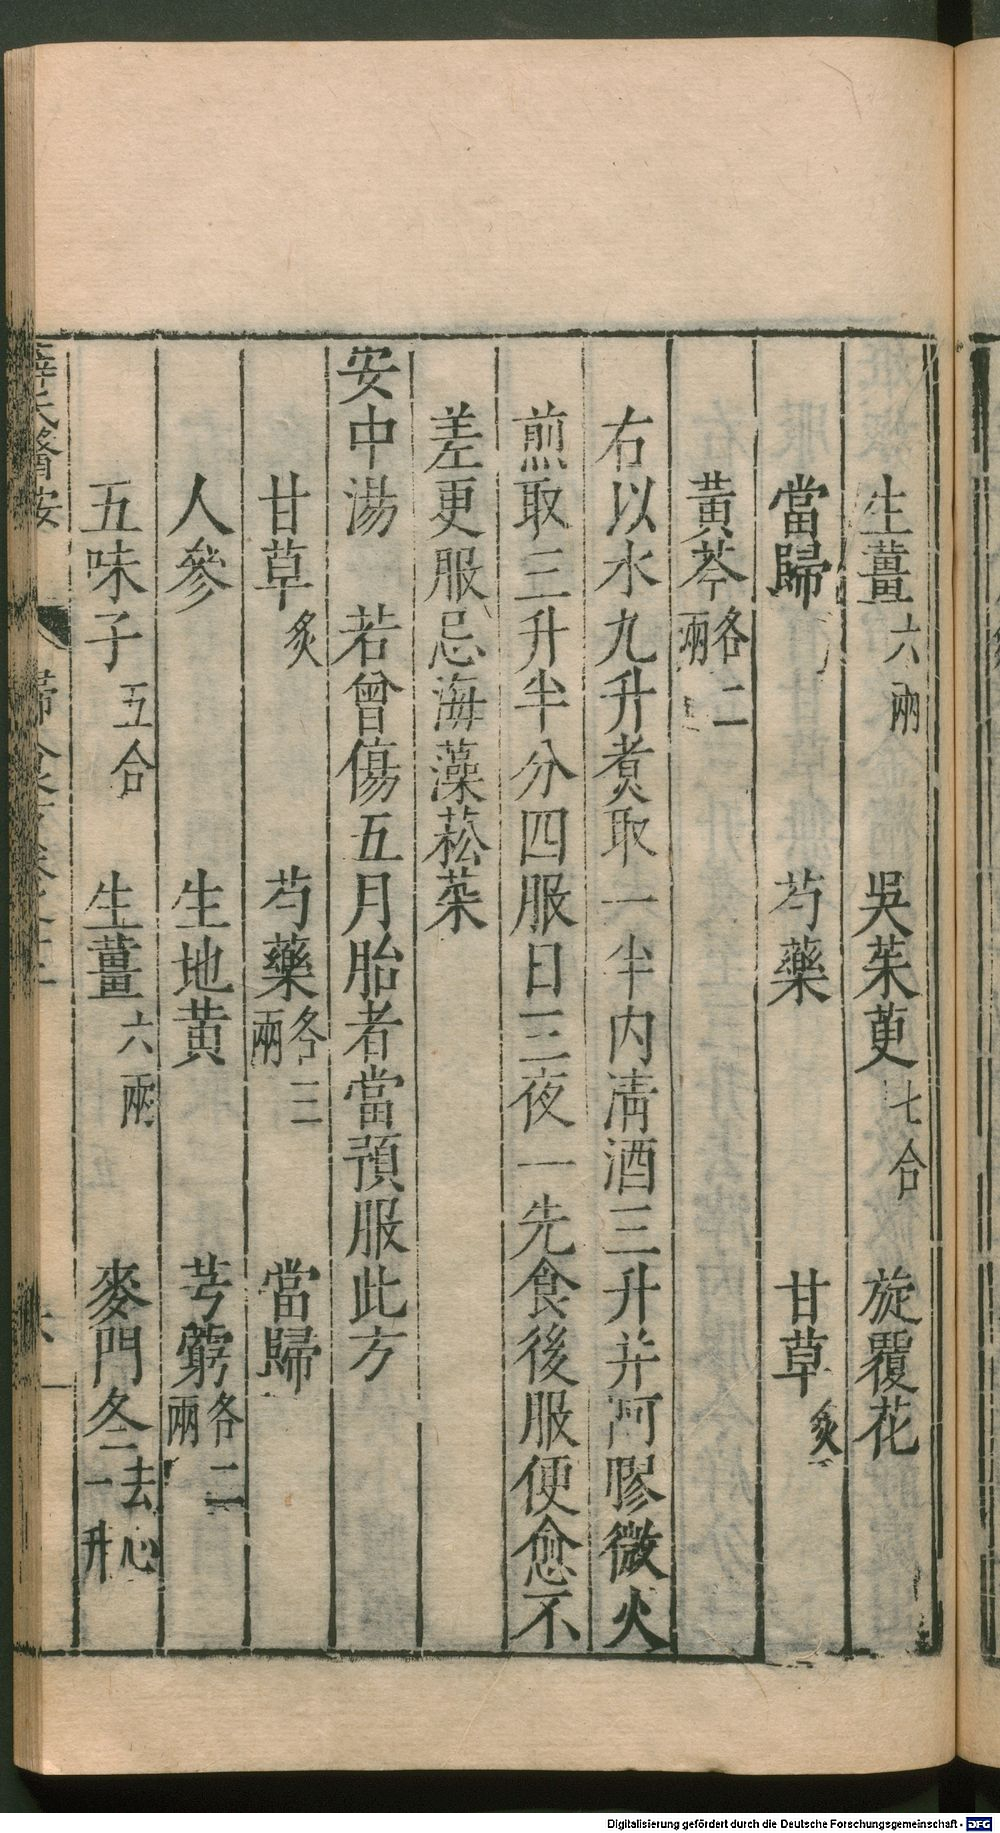 生薑六兩 吳茱萸七合 旋覆花
當歸 芍藥 甘草炙
黃芩各二兩
右以水九升煮取一半内清酒三升并阿膠微火
煎取三升半分四服日三夜一先食後服便愈不
差更服忌海藻菘菜
安中湯 若曾傷五月胎者當預服此方
甘草炙 芍藥各三兩 當歸
人參 生地黄 芎藭各二兩
五味子五合 生薑六兩 麥門冬去心一升
薛氏醫按
Digitalisierung gefördert durch die Deutsche Forschungsgemeinschaft - DFG